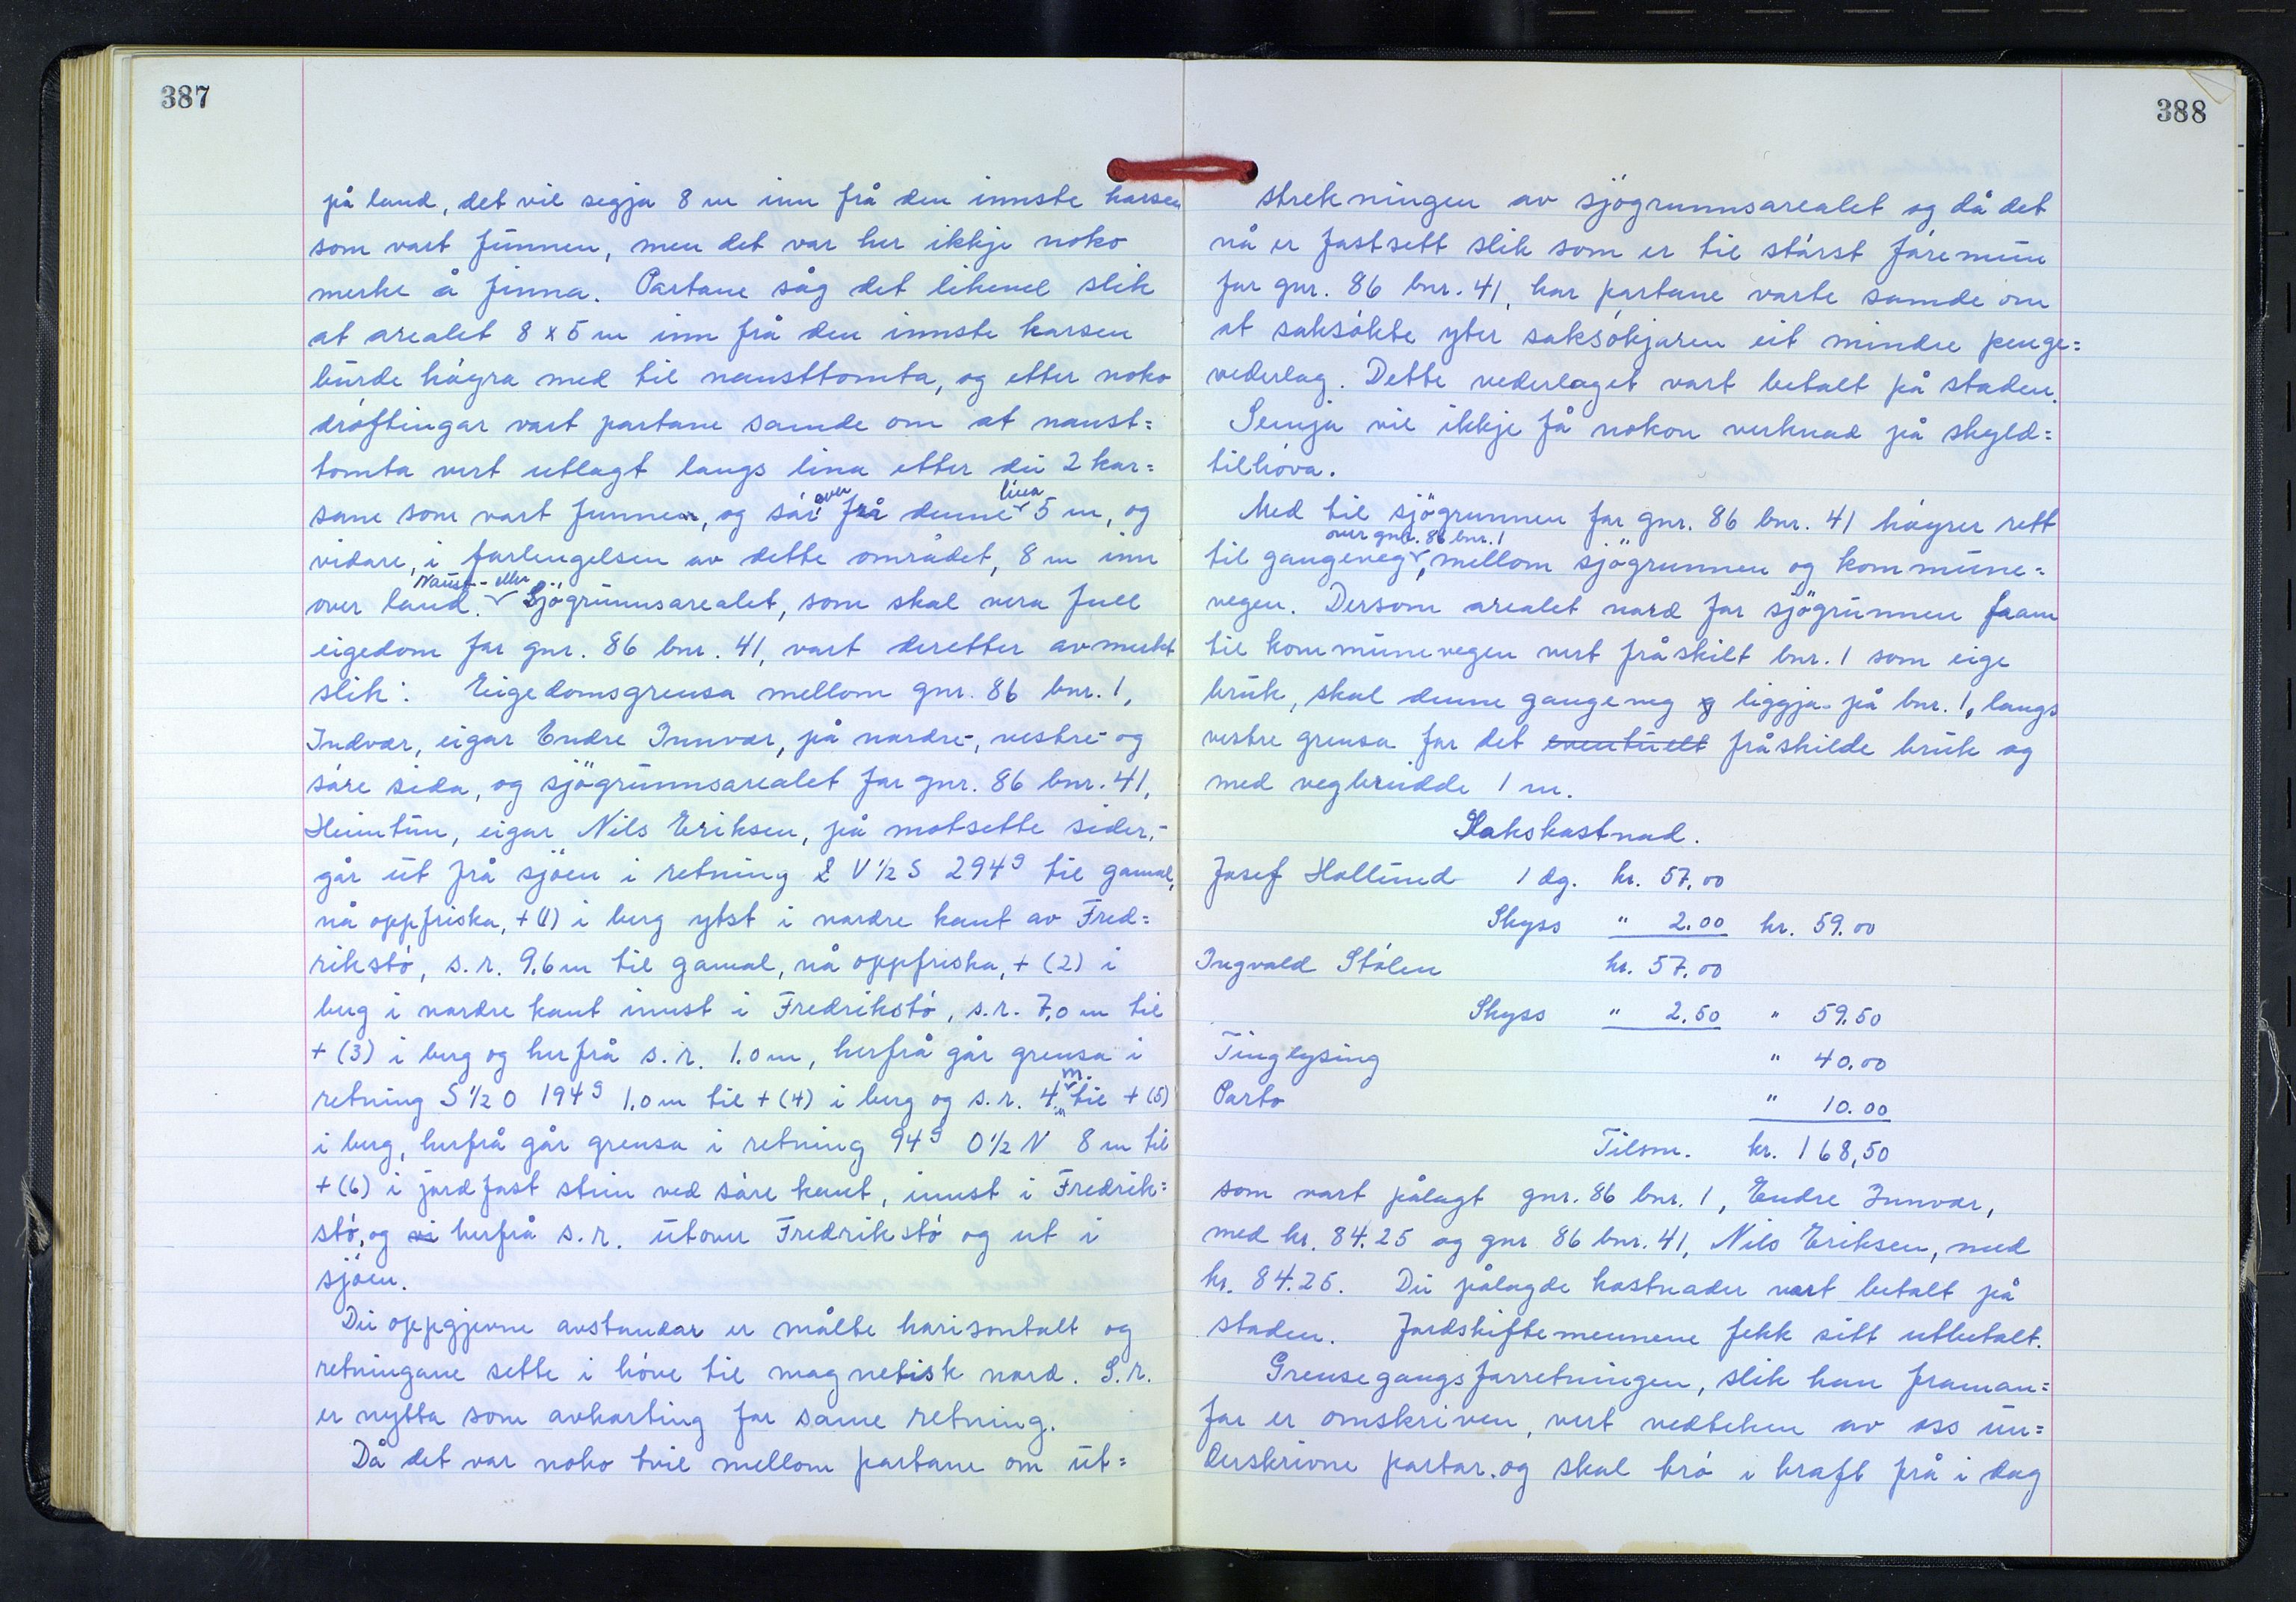 387
på land, det vil segja 8 m inn frå den innste korsen
som vart funnen, men det var her ikkje noko
merke å finna. Partane såg det likevel slik
at arealet 8 x 5 m inn frå den innste korsen
burde høyra med til nausttomta, og etter noko
drøftingar vart partane samde om at naust=
tomta vert utlagt langs lina etter dei 2 kor=
sane som vart funnen, og sør over frå denne lina 5 m, og
vidare, i forlengelsen av dette området, 8 m inn
over land. Naust- eller Sjøgrunnsarealet, som skal vera full
eigedom for gnr. 86 bnr. 41, vart deretter avmerkt
slik: Eigedomsgrensa mellom gnr. 86 bnr. 1,
Indvær, eigar Endre Innvær, på nordre-, vestre- og
søre sida, og sjøgrunnsarealet for gnr. 86 bnr. 41,
Heimtun, eigar Nils Eriksen, på motsette sider,-
går ut frå sjøen i retning V 1/2 S 294g til gamal,
nå oppfriska, + (1) i berg ytst i nordre kant av Fred=
rikstø, s.r. 9.6 m til gamal, nå oppfriska, + (2) i
berg i nordre kant innst i Fredrikstø, s.r. 7,0 m til
+ (3) i berg og herfrå s.r. 1.0 m, herfrå går grensa i
retning S 1/2 O 194g 1.0 m til + (4) i berg og s.r. 4 m. til + (5)
i berg, herfrå går grensa i retning 94g O 1/2 N 8 m til
+ (6) i jordfast stein ved søre kant, innst i Fredrik=
stø, og vi herfrå s.r. utover Fredrikstø og ut i
sjøen.
Dei oppgjevne avstandar er målte horisontalt og
retningane sette i høve til magnetisk nord. S.r.
er nytta som avkorting for same retning.
Då det var noko tvil mellom partane om ut=
388
strekningen av sjøgrunnsarealet og då det
nå er fastsett slik som er til størst føremun
for gnr. 86 bnr. 41, har partane vorte samde om
at saksøkte yter saksøkjaren eit mindre penge=
vederlag. Dette vederlaget vart betalt på staden.
Semja vil ikkje få nokon verknad på skyld=
tilhøva.
Med til sjøgrunnen for gnr. 86 bnr. 41 høyrer rett
til gangeveg over gnr. 86 bnr. 1, mellom sjøgrunnen og kommune=
vegen. Dersom arealet nord for sjøgrunnen fram
til kommunevegen vert fråskilt bnr. 1 som eige
bruk, skal denne gangeveg liggja på bnr. 1, langs
vestre grensa for det eventuelt fråskilde bruk og
med vegbreidde 1 m.
Sakskostnad.
Josef Hollund 1 dg. kr. 57.00
Skyss " 2.00 kr. 59.00
Ingvald Stølen kr. 57.00
Skyss " 2.50 " 59.50
Tinglysing " 40.00
Porto " 10.00
Tilsm. kr. 168,50
som vart pålagt gnr. 86 bnr. 1, Endre Innvær,
med kr. 84.25 og gnr 86 bnr. 41, Nils Eriksen, med
kr. 84.25. Dei pålagde kostnader vart betalt på
staden. Jordskiftemennene fekk sitt utbetalt.
Grensegangsforretningen, slik han framan=
for er omskriven, vert vedteken av oss un=
derskrivne partar og skal trø i kraft frå i dag